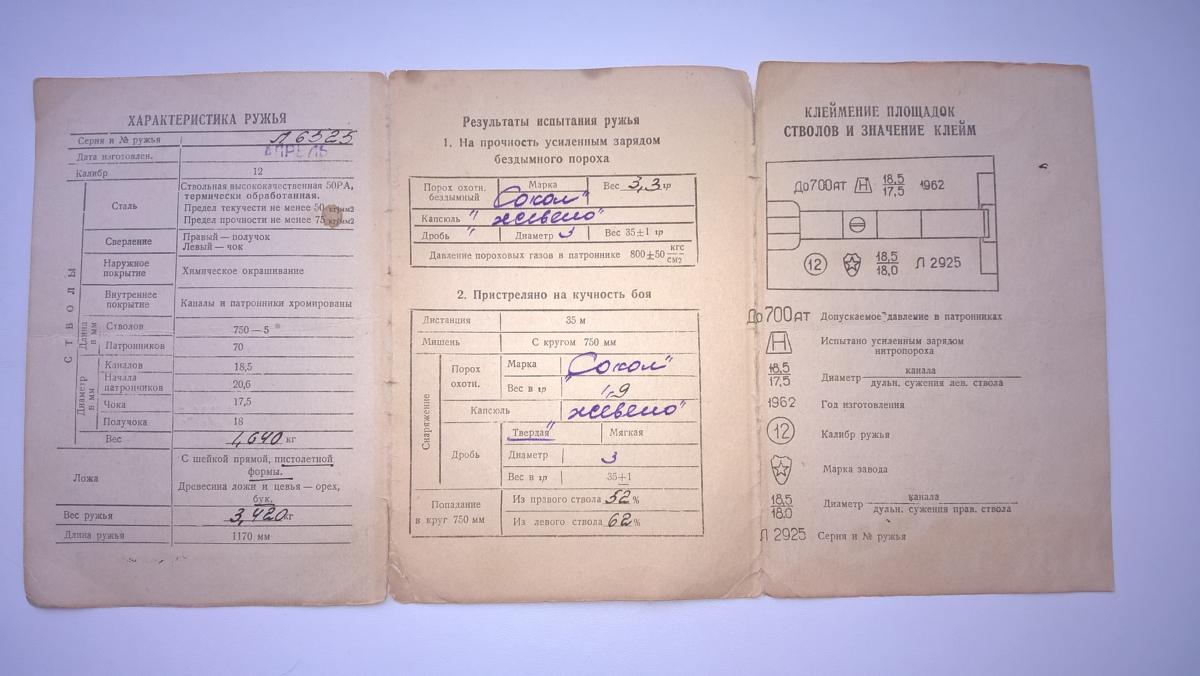 ХАРАКТЕРИСТИКА РУЖЬЯ
Серия и № ружья Л 6525
Дата изготовлен. АПРЕЛЬ
Калибр 12
СТВОЛЫ
Сталь
Ствольная высококачественная 50РА,
термически обработанная.
Предел текучести не менее 50 кг/мм2
Предел прочности не менее 75 кг/мм2
Сверление
Правый — получок
Левый — чок
Наружное
покрытие
Химическое окрашивание
Внутреннее
покрытие
Каналы и патронники хромированы
Длина
в мм
Стволов 750—5
Патронников 70
Диаметр
в мм
Каналов 18,5
Начала
патрончиков 20,6
Чока 17,5
Получока 18
Вес 1,640 кг
Ложа
С шейкой прямой, пистолетной
формы.
Древесина ложи и цевья — орех,
бук.
Вес ружья 3,420 кг
Длина ружья 1170 мм
Результаты испытания ружья
1. На прочность усиленным зарядом
бездымного пороха
Порох охотн.
бездымный
Марка
"Сокол"
Вес 3,3 гр
Капсюль "жевело"
Дробь " Диаметр 3 Вес 35±1 гр
Давление пороховых газов в патроннике 800±50 кгс
см2
2. Пристреляно на кучность боя
Дистанция 35 м
Мишень С кругом 750 мм
Снаряжение
Порох
охотн.
Марка "Сокол"
Вес в гр 1,9
Капсюль "жевело"
Дробь
Твердая" Мягкая
Диаметр 3
Вес в гр 35±1
Попадание
в круг 750 мм
Из правого ствола 52 %
Из левого ствола 62 %
КЛЕЙМЕНИЕ ПЛОЩАДОК
СТВОЛОВ И ЗНАЧЕНИЕ КЛЕЙМ
До700АТ Н 18,5
17,5 1962
12 18,5
18,0 Л 2925
До700АТ Допускаемое давление в патронниках
Н Испытано усиленным зарядом
нитропороха
18,5
17,5 Диаметр канала
дульн. сужения лев. ствола
1962 Год изготовления
12 Калибр ружья
Марка завода
18,5
18.0 Диаметр канала
дульн. сужения прав. ствола
Л 2925 Серия и № ружья